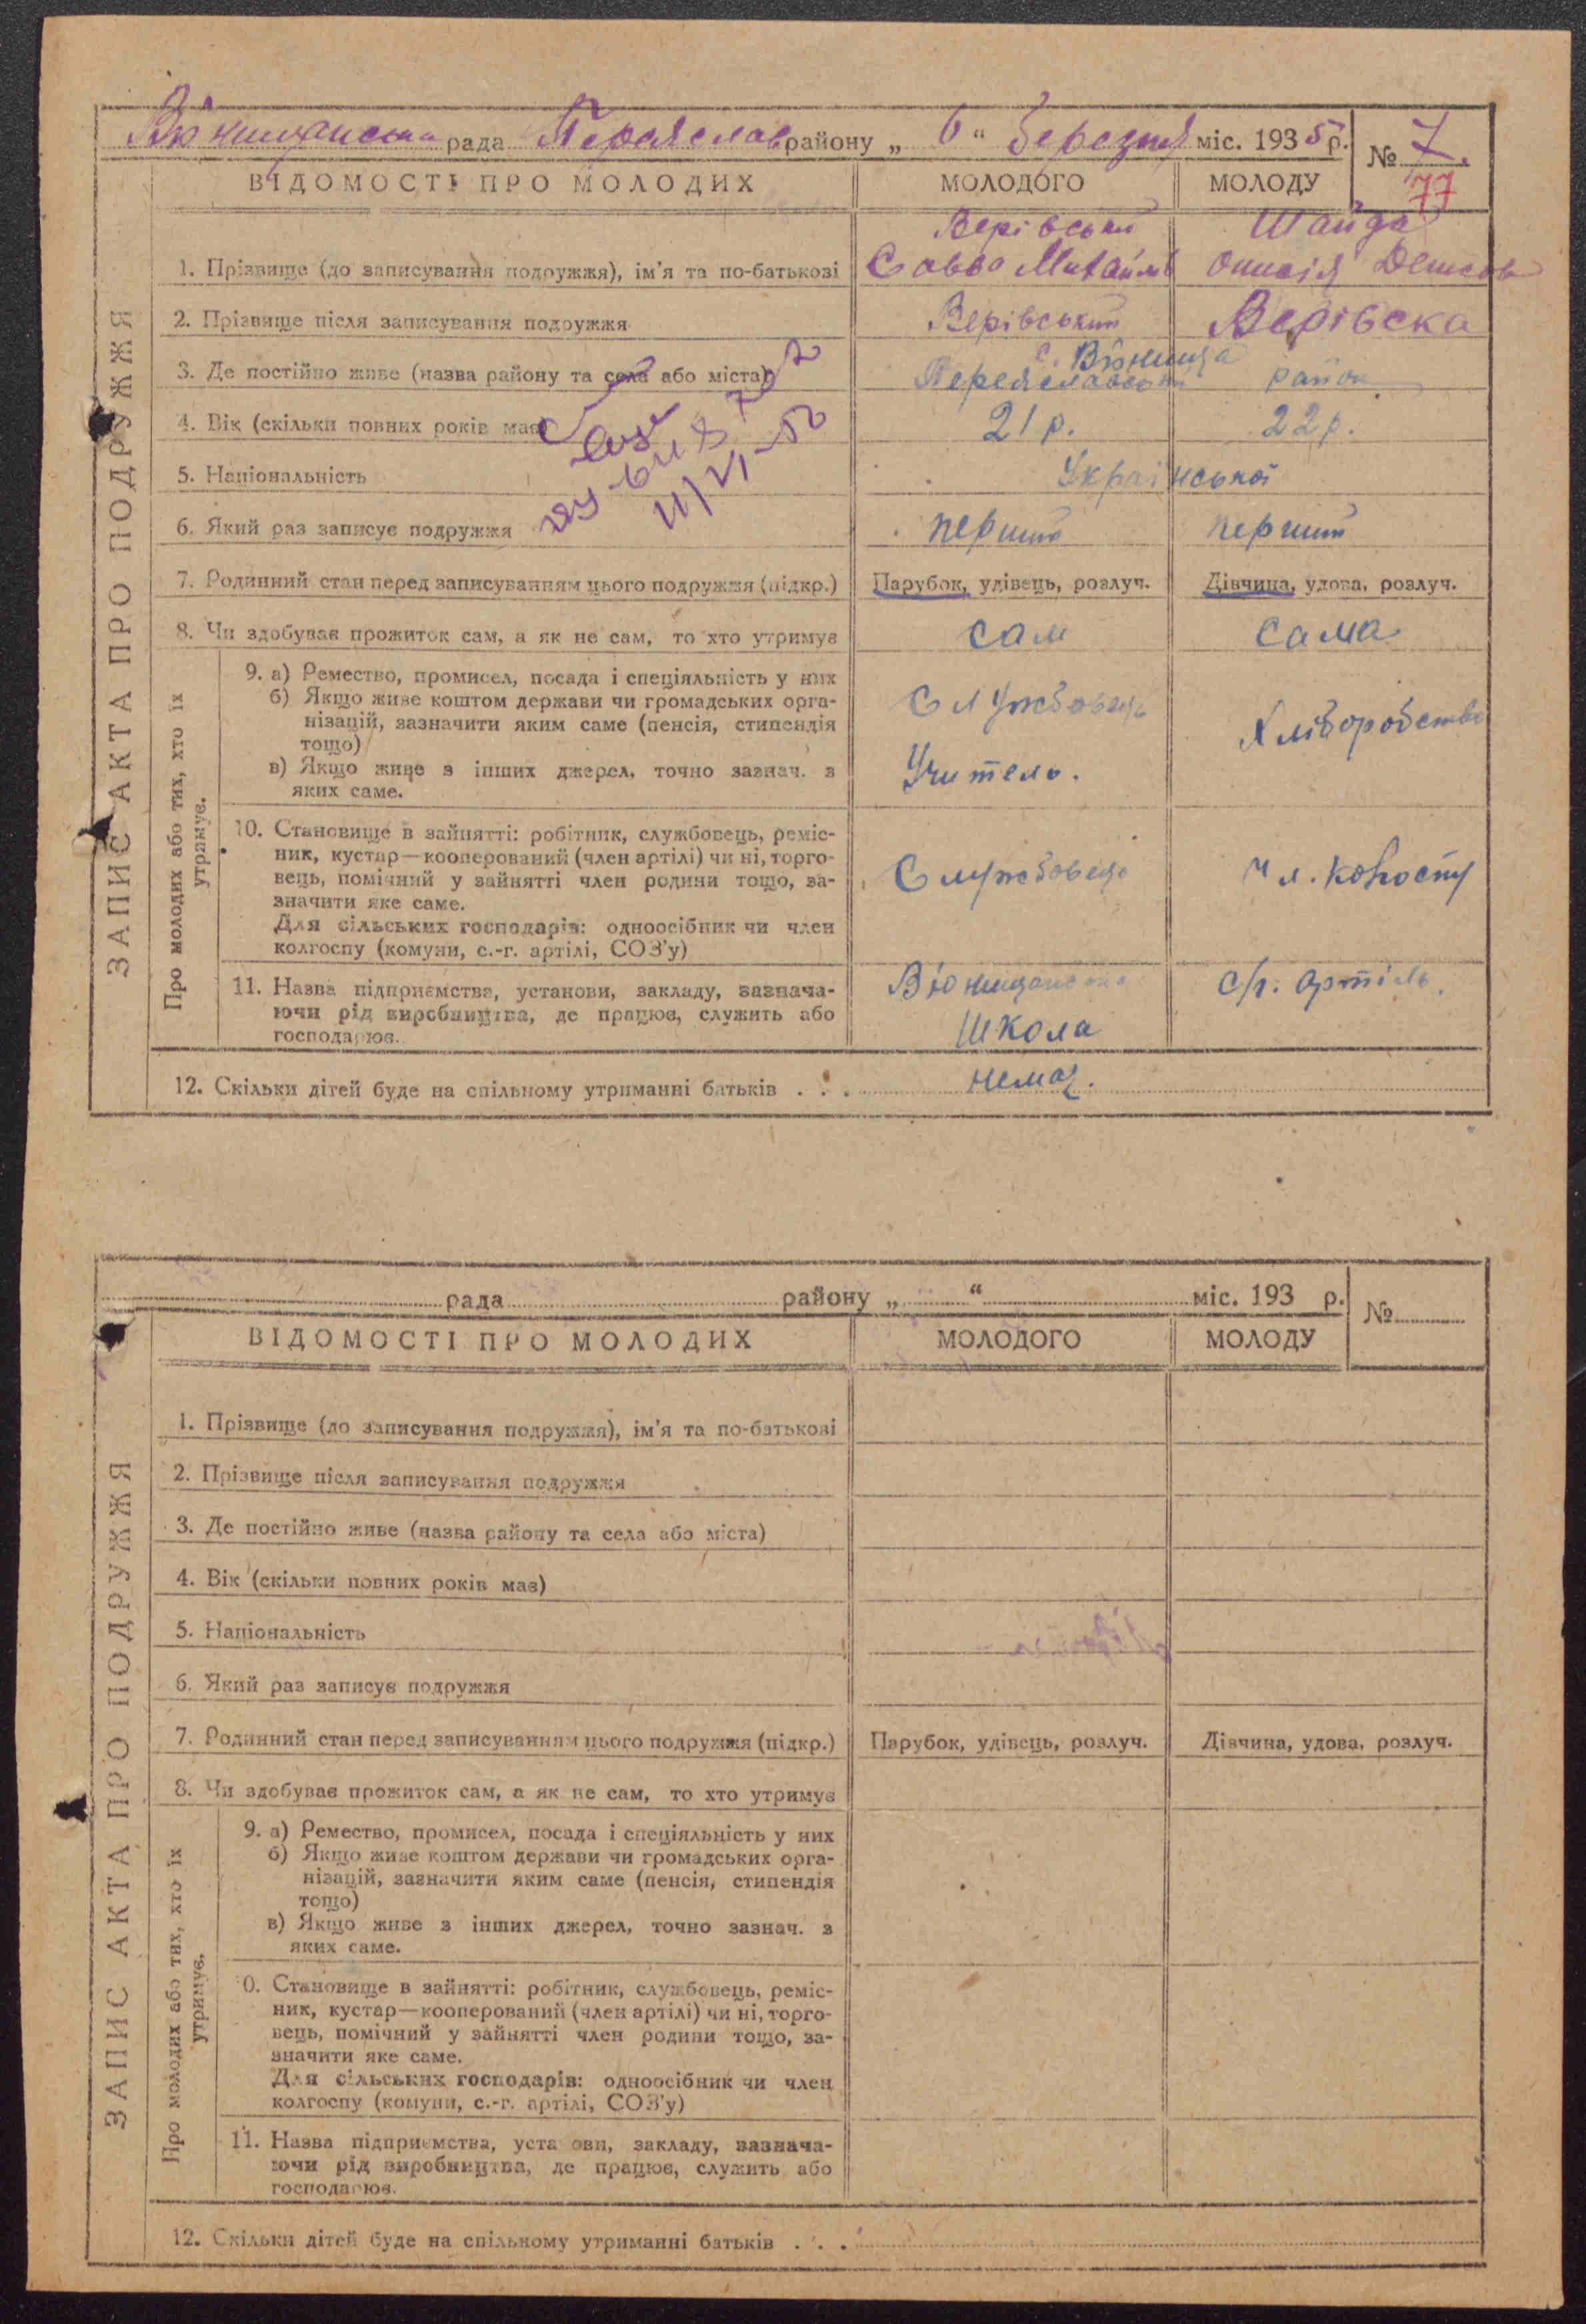 В'юнищанська рада Переяслав району „ 6 “ березня міс. 1935 р.
№ 7.
77
ВІДОМОСТІ ПРО МОЛОДИХ МОЛОДОГО МОЛОДУ
Верівський Шайда
1. Прізвище (до записування подружжя), ім'я та по-батькові Савва Михайл
2. Прізвище після записування подружжя Верівський Верівска
с. В'юнища
3. Де постійно живе (назва району та села або міста) Переяславський район
4. Вік (скільки повних років має) 21 р. 22 р.
5. Національність Української
6. Який раз записує подружжя перший перший
7. Родинний стан перед записуванням цього подружжя (підкр.) Парубок, удівець, розлуч. Дівчина, удова, розлуч.
8. Чи здобуває прожиток сам, а як не сам, то хто утримує сам сама
ЗАПИС АКТА ПРО ПОДРУЖЖЯ
Про молодих або тих, хто їх
утримує.
9. а) Ремество, промисел, посада і спеціяльність у них
б) Якщо живе коштом держави чи громадських орга- Службовець
нізацій, зазначити яким саме (пенсія, стипендія Хліборобство
тощо)
в) Якщо живе з інших джерел, точно зазнач. з Учитель.
яких саме.
10. Становище в зайнятті: робітник, службовець, реміс-
ник, кустар—кооперований (член артілі) чи ні, торго-
вець, помічний у зайнятті член родини тощо, за- Службовець чл. колгоспу
значити яке саме.
Для сільських господарів: одноосібник чи член
колгоспу (комуни, с.-г. артілі, СОЗ'у)
11. Назва підприємства, установи, закладу, зазнача- В'юнищанська с/г. артіль.
ючи рід виробництва, де працює, служить або
господарює. школа
12. Скільки дітей буде на спільному утриманні батьків . . . немає.
рада району „ “ міс. 193 р.
№
ВІДОМОСТІ ПРО МОЛОДИХ МОЛОДОГО МОЛОДУ
1. Прізвище (до записування подружжя), ім'я та по-батькові
2. Прізвище після записування подружжя
3. Де постійно живе (назва району та села або міста)
4. Вік (скільки повних років має)
5. Національність
6. Який раз записує подружжя
7. Родинний стан перед записуванням цього подружжя (підкр.) Парубок, удівець, розлуч. Дівчина, удова, розлуч.
8. Чи здобуває прожиток сам, а як не сам, то хто утримує
ЗАПИС АКТА ПРО ПОДРУЖЖЯ
Про молодих або тих, хто їх
утримує.
9. а) Ремество, промисел, посада і спеціяльність у них
б) Якщо живе коштом держави чи громадських орга-
нізацій, зазначити яким саме (пенсія, стипендія
тощо)
в) Якщо живе з інших джерел, точно зазнач. з
яких саме.
0. Становище в зайнятті: робітник, службовець, реміс-
ник, кустар—кооперований (член артілі) чи ні, торго-
вець, помічний у зайнятті член родини тощо, за-
значити яке саме.
Для сільських господарів: одноосібник чи член
колгоспу (комуни, с.-г. артілі, СОЗ'у)
11. Назва підприємства, уста ови, закладу, зазнача-
ючи рід виробництва, де працює, служить або
господарює.
12. Скільки дітей буде на спільному утриманні батьків . . .